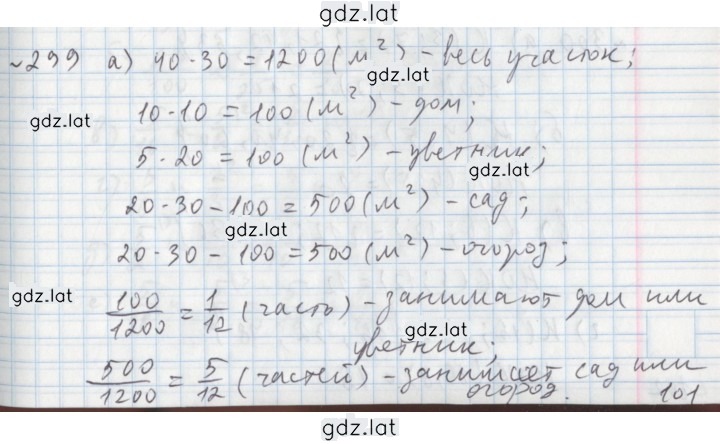 gdz.lat
№299 а) 40·30 = 1200 (м²) – весь участок;
gdz.lat
10·10 = 100 (м²) – дом;
gdz.lat
5·20 = 100 (м²) – цветник;
gdz.lat
20·30 – 100 = 500 (м²) – сад;
gdz.lat
20·30 – 100 = 500 (м²) – огород;
gdz.lat
100/1200 = 1/12 (часть) – занимают дом или
gdz.lat
цветник;
500/1200 = 5/12 (частей) – занимает сад или
огород.
101
gdz.lat